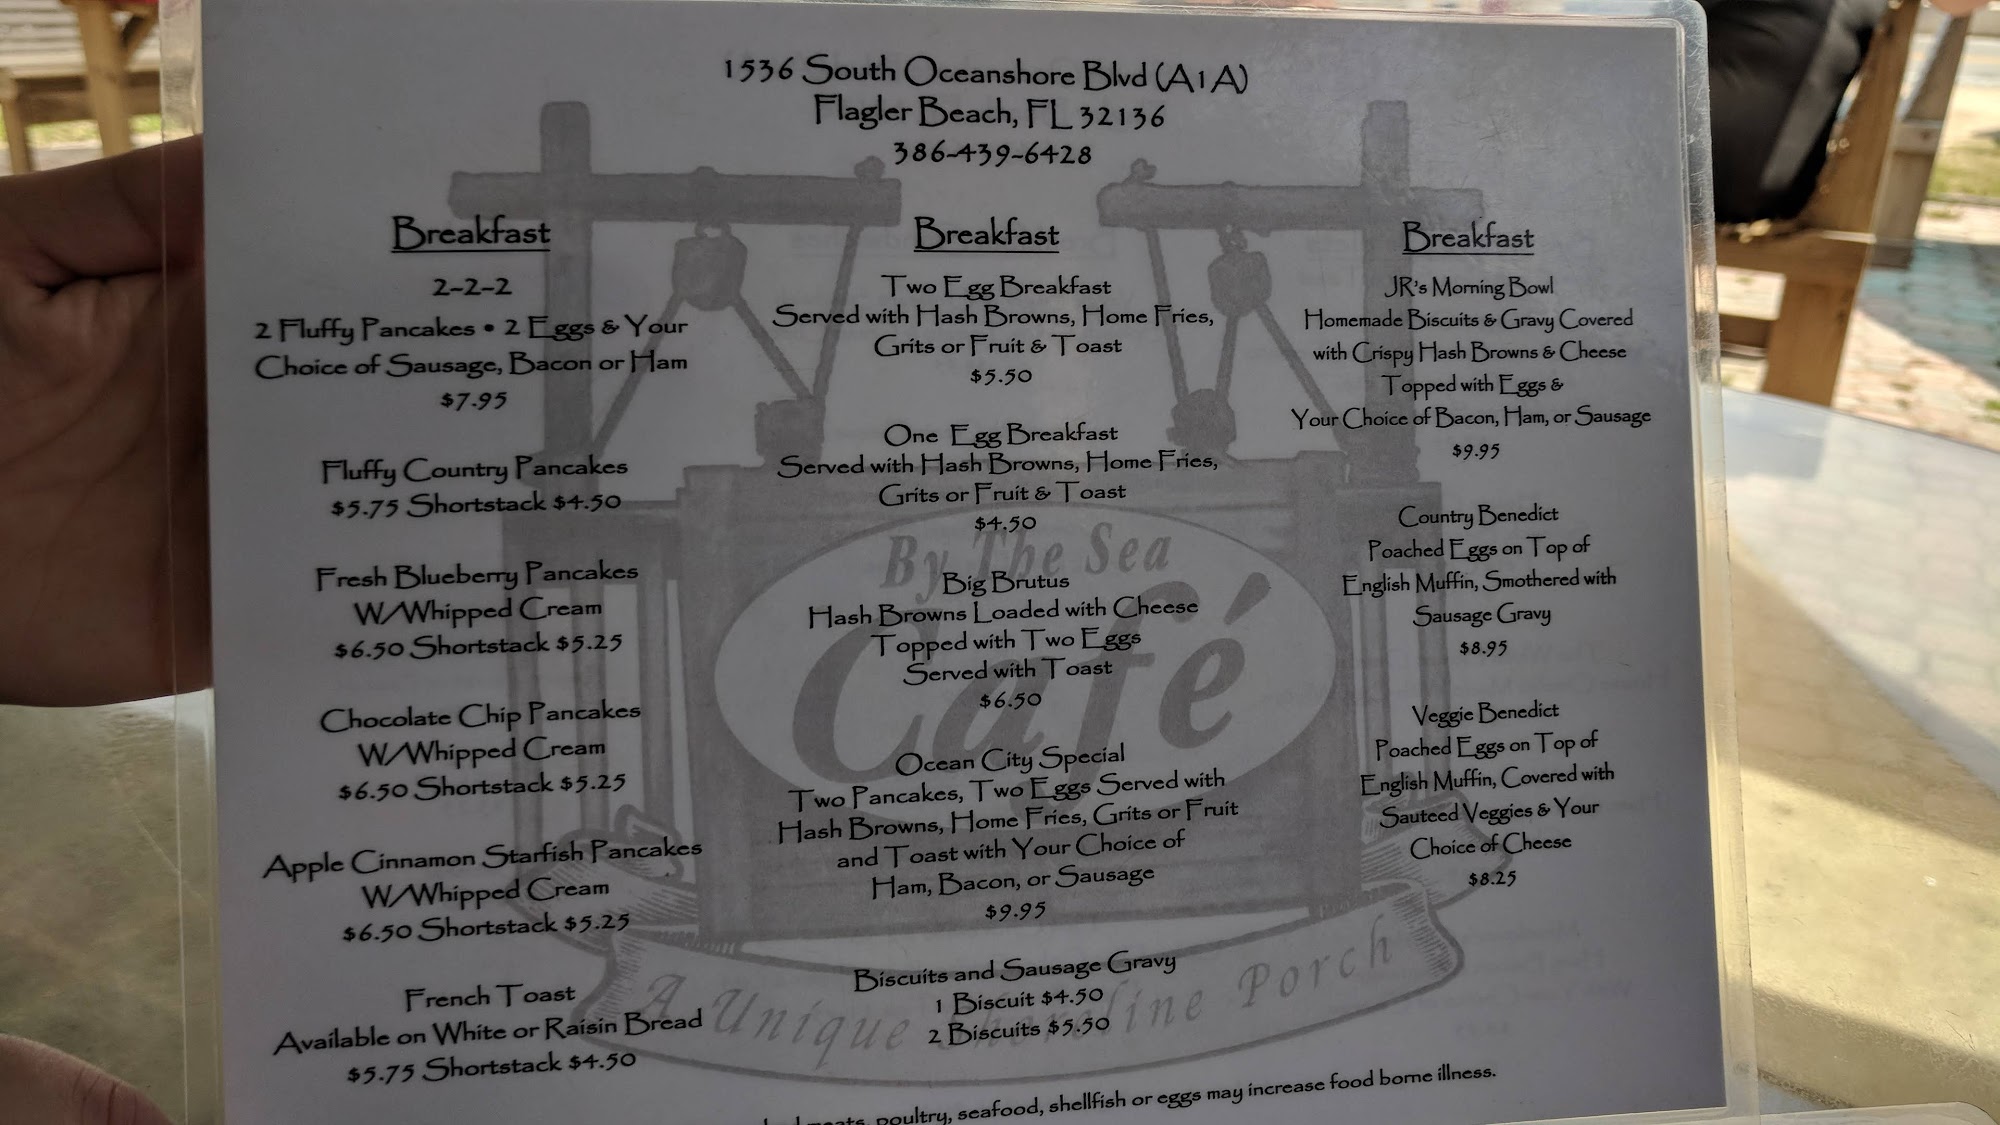 1536 South Oceanshore Blvd (A1A)
Flagler Beach, FL 32136
386-439-6428
Breakfast
2-2-2
2 Fluffy Pancakes • 2 Eggs & Your
Choice of Sausage, Bacon or Ham
$7.95
Fluffy Country Pancakes
$5.75 Shortstack $4.50
Fresh Blueberry Pancakes
W/Whipped Cream
$6.50 Shortstack $5.25
Chocolate Chip Pancakes
W/Whipped Cream
$6.50 Shortstack $5.25
Apple Cinnamon Starfish Pancakes
W/Whipped Cream
$6.50 Shortstack $5.25
French Toast
Available on White or Raisin Bread
$5.75 Shortstack $4.50
Breakfast
Two Egg Breakfast
Served with Hash Browns, Home Fries,
Grits or Fruit & Toast
$5.50
One Egg Breakfast
Served with Hash Browns, Home Fries,
Grits or Fruit & Toast
$4.50
Big Brutus
Hash Browns Loaded with Cheese
Topped with Two Eggs
Served with Toast
$6.50
Ocean City Special
Two Pancakes, Two Eggs Served with
Hash Browns, Home Fries, Grits or Fruit
and Toast with Your Choice of
Ham, Bacon, or Sausage
$9.95
Biscuits and Sausage Gravy
1 Biscuit $4.50
2 Biscuits $5.50
Breakfast
JR's Morning Bowl
Homemade Biscuits & Gravy Covered
with Crispy Hash Browns & Cheese
Topped with Eggs &
Your Choice of Bacon, Ham, or Sausage
$9.95
Country Benedict
Poached Eggs on Top of
English Muffin, Smothered with
Sausage Gravy
$8.95
Veggie Benedict
Poached Eggs on Top of
English Muffin, Covered with
Sauteed Veggies & Your
Choice of Cheese
$8.25
By The Sea
Café
A Unique Shoreline Porch
meats, poultry, seafood, shellfish or eggs may increase food borne illness.